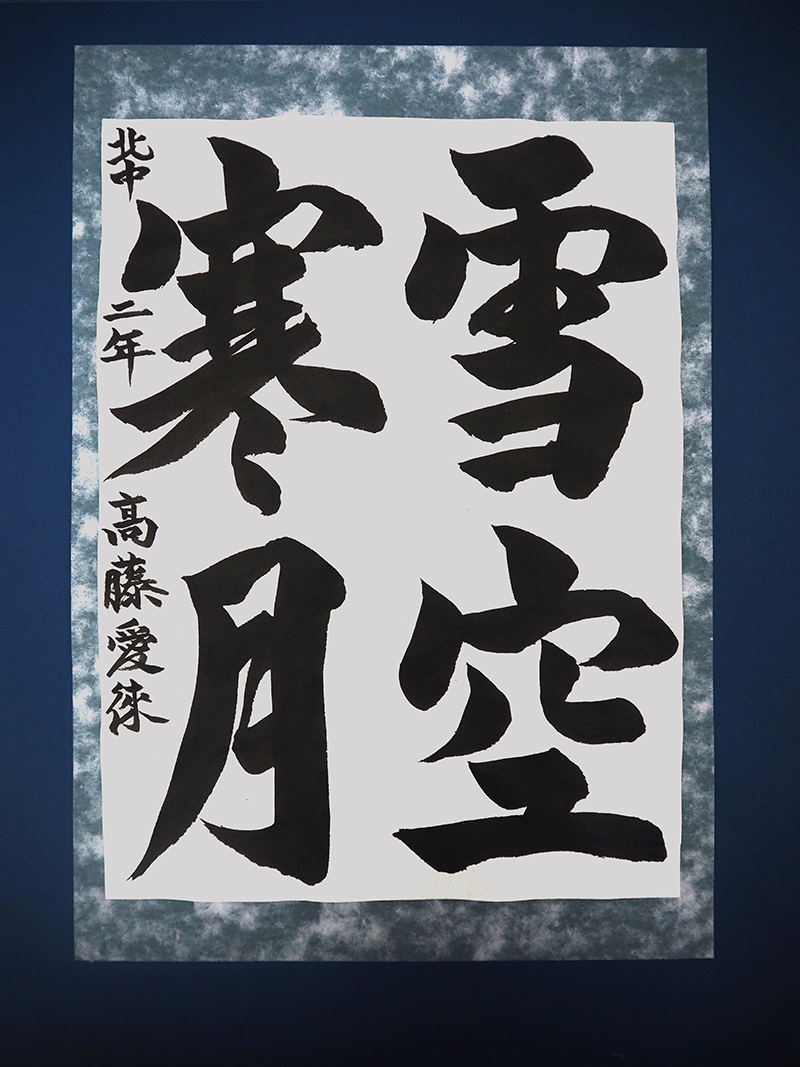 雪空
寒月
北中 二年 高藤愛徠